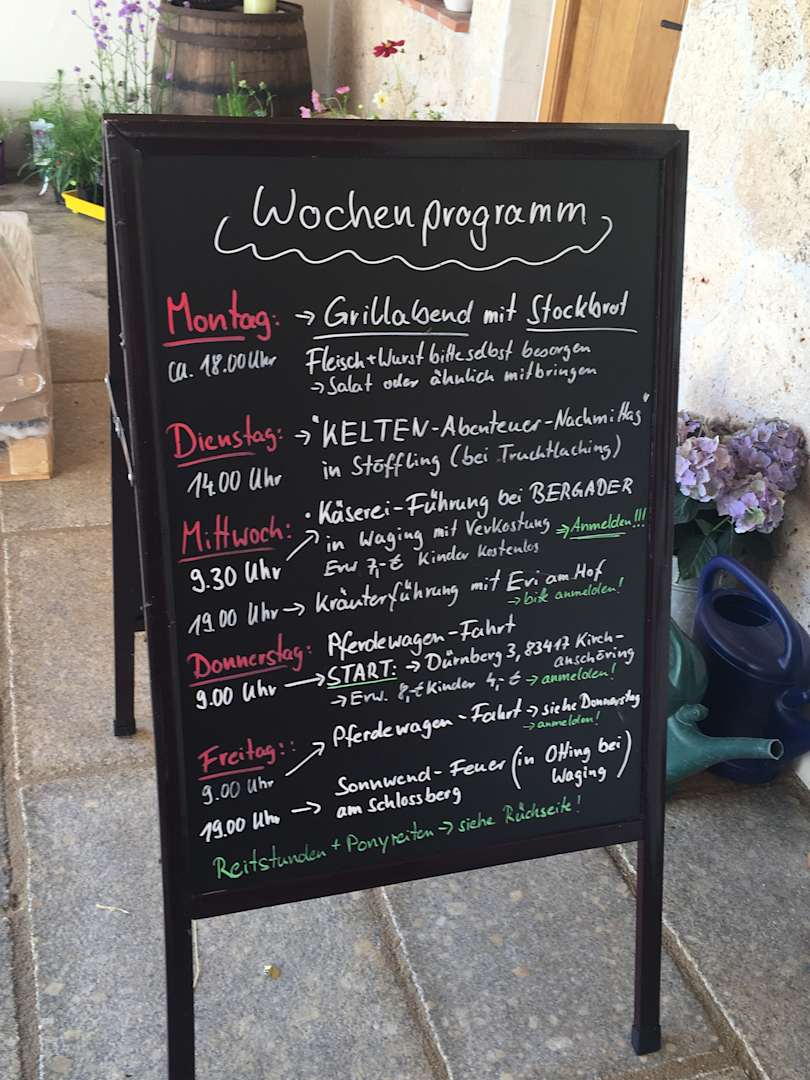 Wochenprogramm
Montag: → Grillabend mit Stockbrot
ca. 18.00 Uhr Fleisch + Wurst bitte selbst besorgen
→ Salat oder ähnlich mitbringen
Dienstag: → "KELTEN-Abenteuer-Nachmittag"
14.00 Uhr in Stöffling (bei Truchtlaching)
Mittwoch: • Käserei-Führung bei BERGADER
in Waging mit Verkostung → Anmelden!!!
9.30 Uhr Erw 7,-€ Kinder kostenlos
19.00 Uhr → Kräuterführung mit Evi am Hof
→ bitte anmelden!
Donnerstag: Pferdewagen-Fahrt
9.00 Uhr → START: → Dürnberg 3, 83417 Kirch-
anschöring
→ Erw. 8,-€ Kinder 4,-€ → anmelden!
Freitag:: Pferdewagen-Fahrt → siehe Donnerstag
→ anmelden!
9.00 Uhr
19.00 Uhr → Sonnwend-Feuer (in Otting bei
am Schlossberg Waging)
Reitstunden + Ponyreiten → siehe Rückseite!